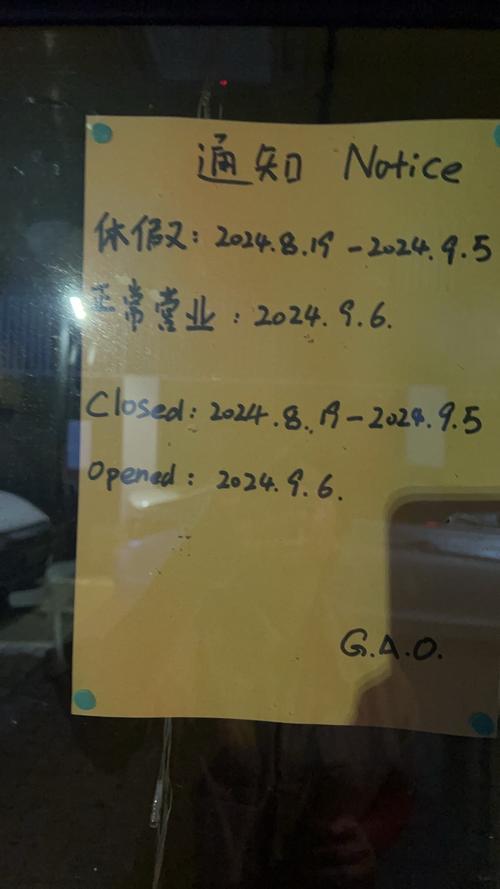 通知 Notice
休假: 2024.8.19 - 2024.9.5
正常营业: 2024.9.6.
Closed: 2024.8.19 - 2024.9.5
Opened: 2024.9.6.
G.A.O.